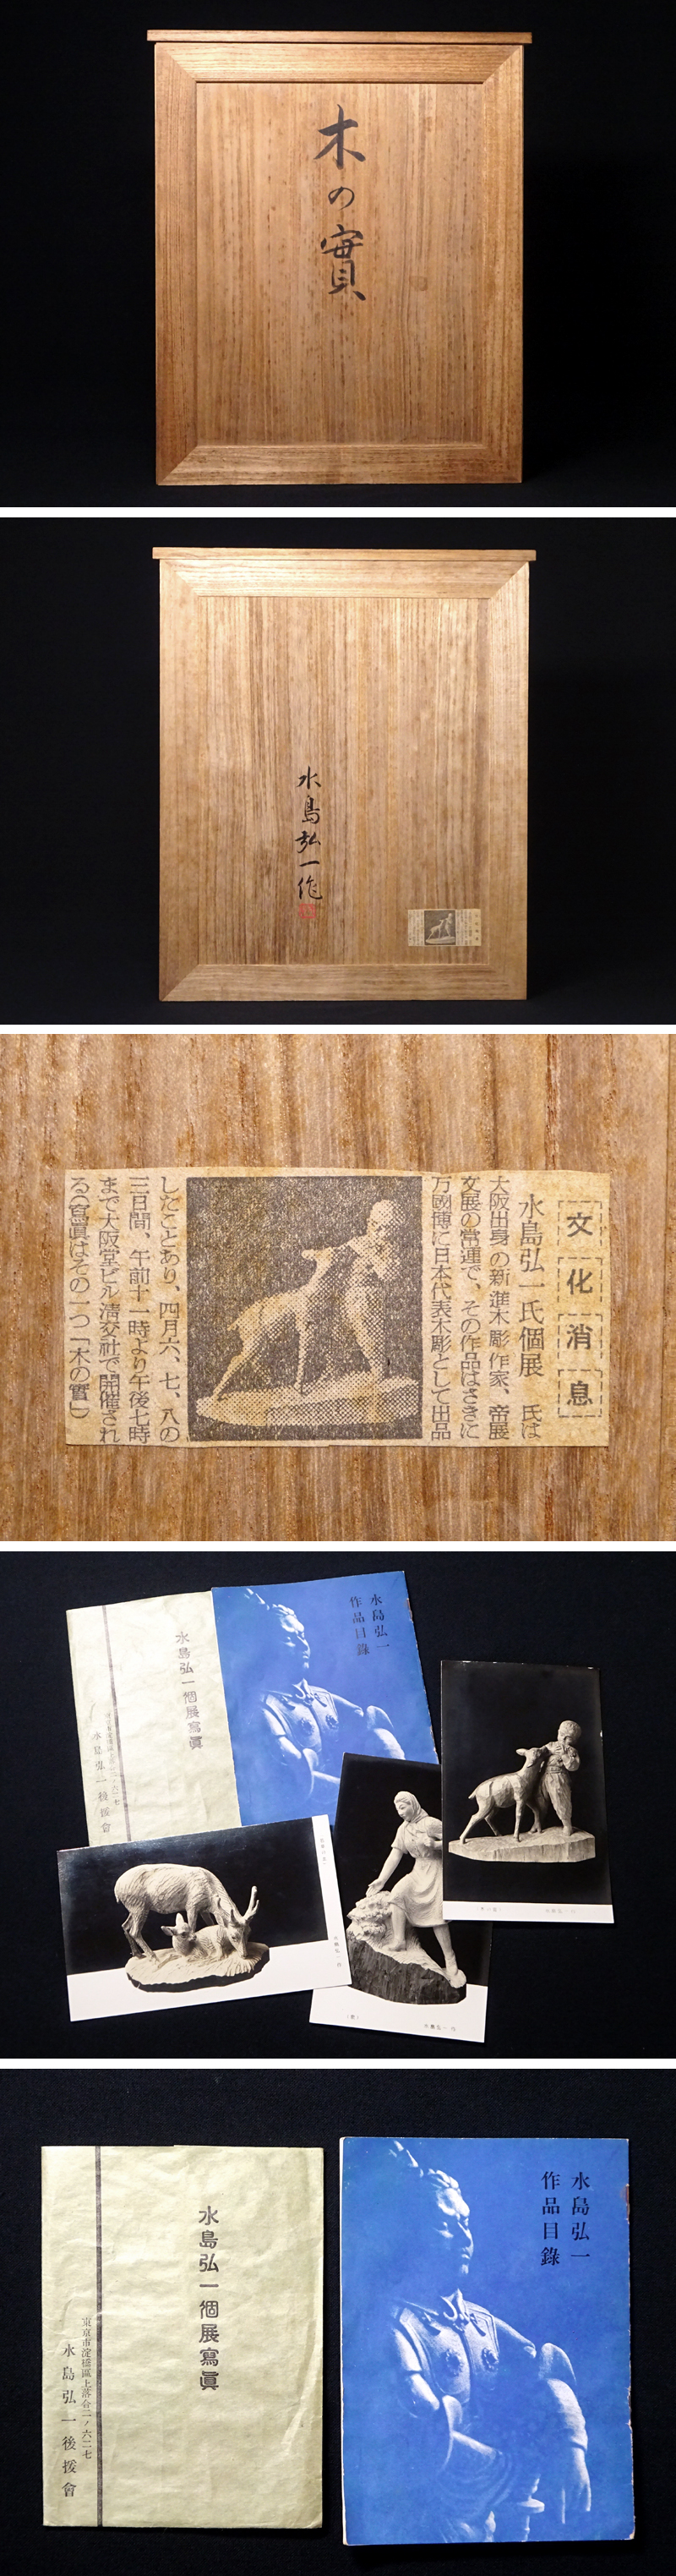 木の實
水島弘一作
文化消息
水島弘一氏個展　氏は
大阪出身の新進木彫作家、帝展
文展の常連で、その作品はさきに
万國博に日本代表木彫として出品
したことあり、四月六、七、八の
三日間、午前十一時より午後七時
まで大阪堂ビル清交社で開催され
る(寫眞はその一つ「木の實」)
水島弘一個展寫眞
水島弘一後援會
水島弘一
作品目錄
水島弘一個展寫眞
東京市淀橋區上落合二ノ六二七
水島弘一後援會
水島弘一
作品目錄